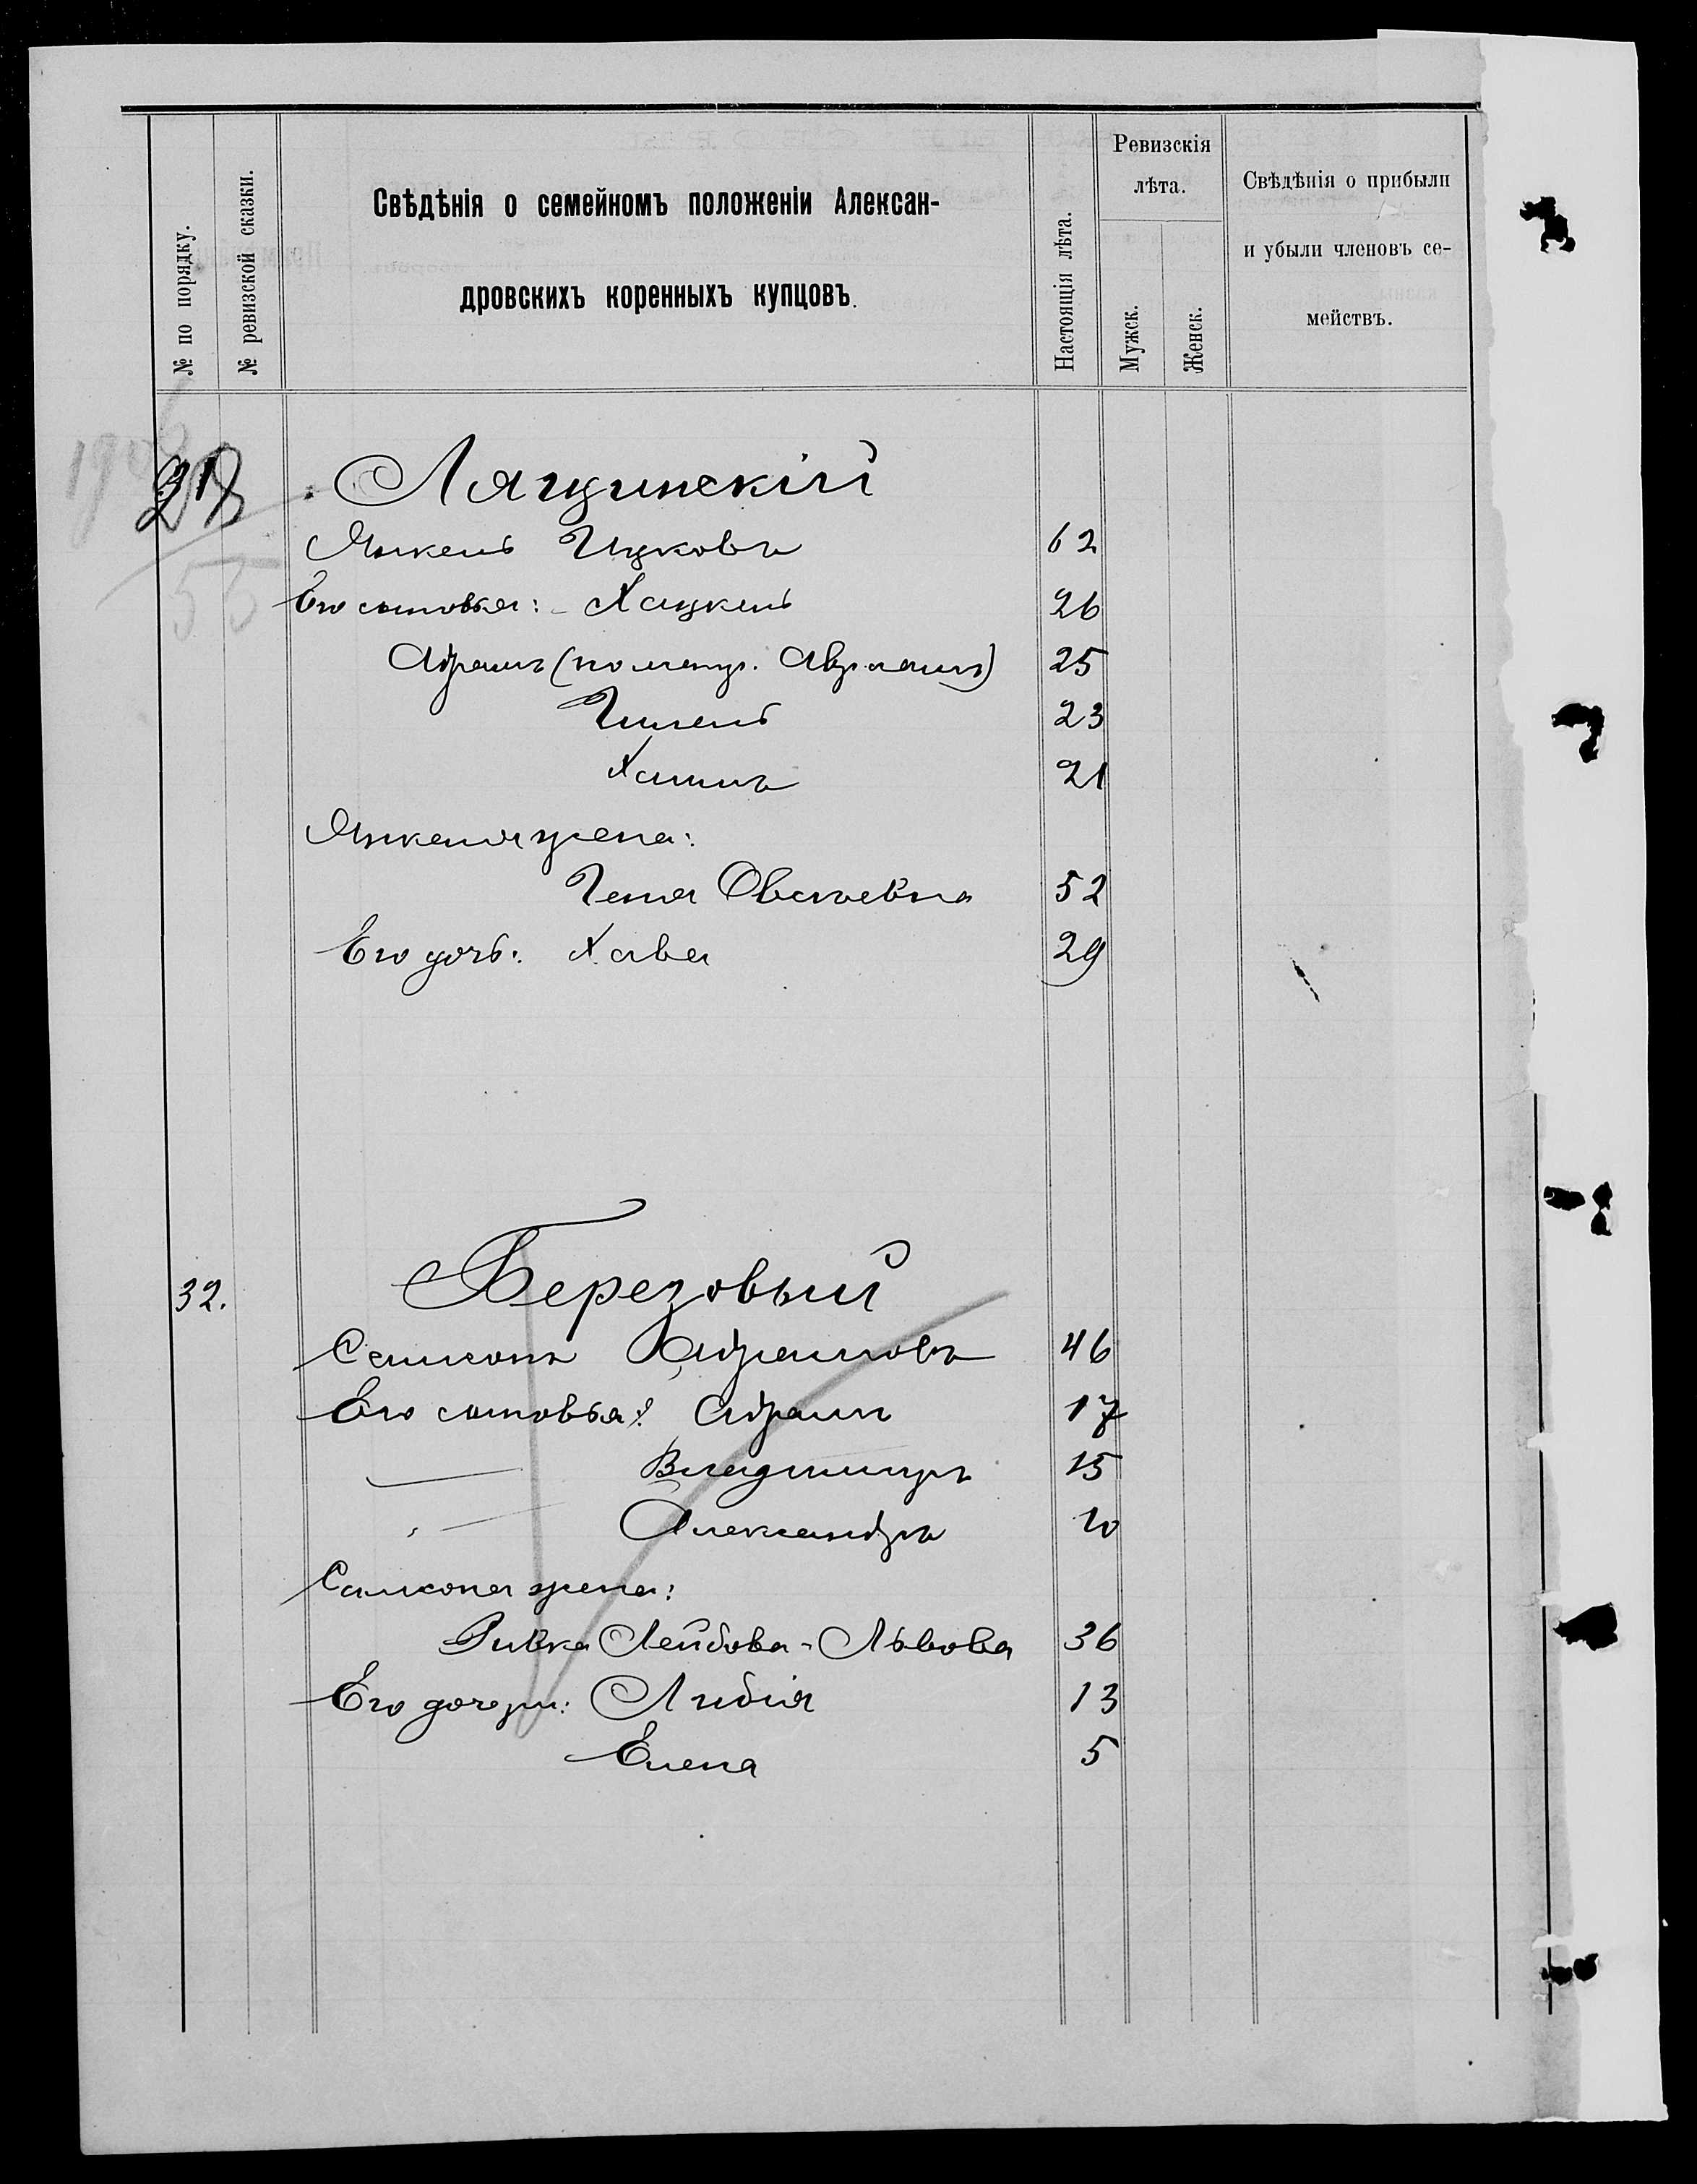 № по порядку.
№ ревизской сказки.
Свѣдѣнія о семейномъ положеніи Алексан-
дровскихъ коренныхъ купцовъ.
Настоящія лѣта.
Ревизскія
лѣта.
Мужск.
Женск.
Свѣдѣнія о прибыли
и убыли членовъ се-
мействъ.
31 Лящинскій
55
Янкель Ицковъ 62
Его сыновья: Хацкель 26
Абрамъ (по метр. Авраамъ) 25
Гилель 23
Хаимъ 21
Янкеля жена:
Геня Овсеевна 52
Его дочь: Хава 29
32. Березовый
Самсонъ Абрамовъ 46
Его сыновья: Абрамъ 17
Владимиръ 15
Александръ 10
Самсона жена:
Ривка Лейбова-Львова 36
Его дочери: Лидія 13
Елена 5